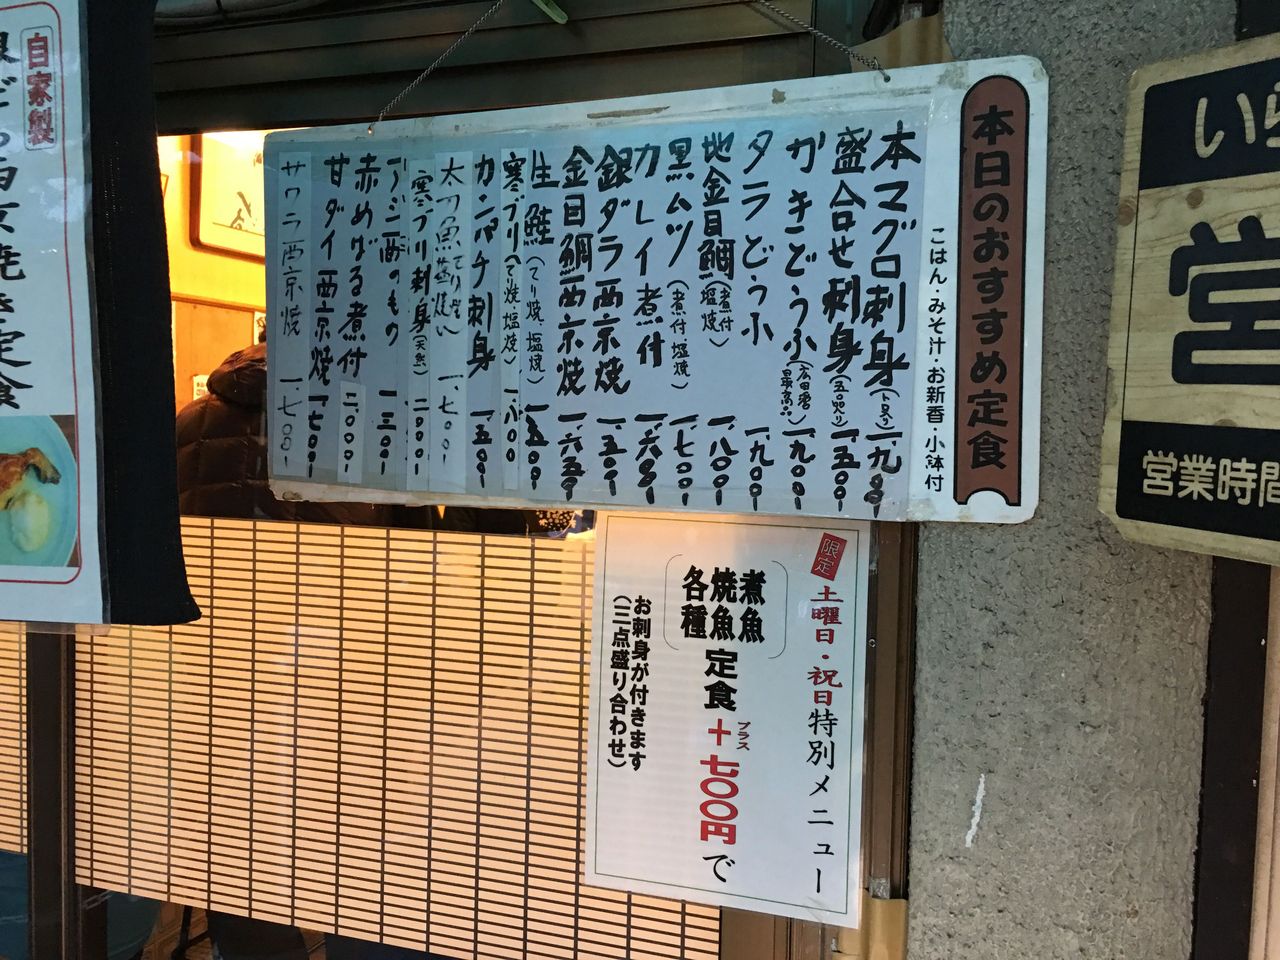 本日のおすすめ定食
ごはん・みそ汁・お新香・小鉢付
本マグロ刺身(トロ入り)一、九〇〇
盛合せ刺身(五点盛り)一、五〇〇
かきどうふ(広田湾最高!!)一、九〇〇
タラどうふ 一、九〇〇
地金目鯛(煮付 塩焼)一、八〇〇
黒ムツ(煮付 塩焼)一、七〇〇
カレイ煮付 一、六〇〇
銀ダラ西京焼 一、五〇〇
金目鯛西京焼 一、六五〇
生鮭(てり焼 塩焼)一、五〇〇
寒ブリ(てり焼 塩焼)一、八〇〇
カンパチ刺身 一、五〇〇
一、七〇〇
寒ブリ刺身(天然)二、〇〇〇
一、三〇〇
赤めばる煮付 二、〇〇〇
甘ダイ西京焼 一、七〇〇
サワラ西京焼 一、七〇〇
限定
土曜日・祝日特別メニュー
煮魚
焼魚
各種
定食+七〇〇円で
プラス
お刺身が付きます
(三点盛り合わせ)
自家製
営
営業時間